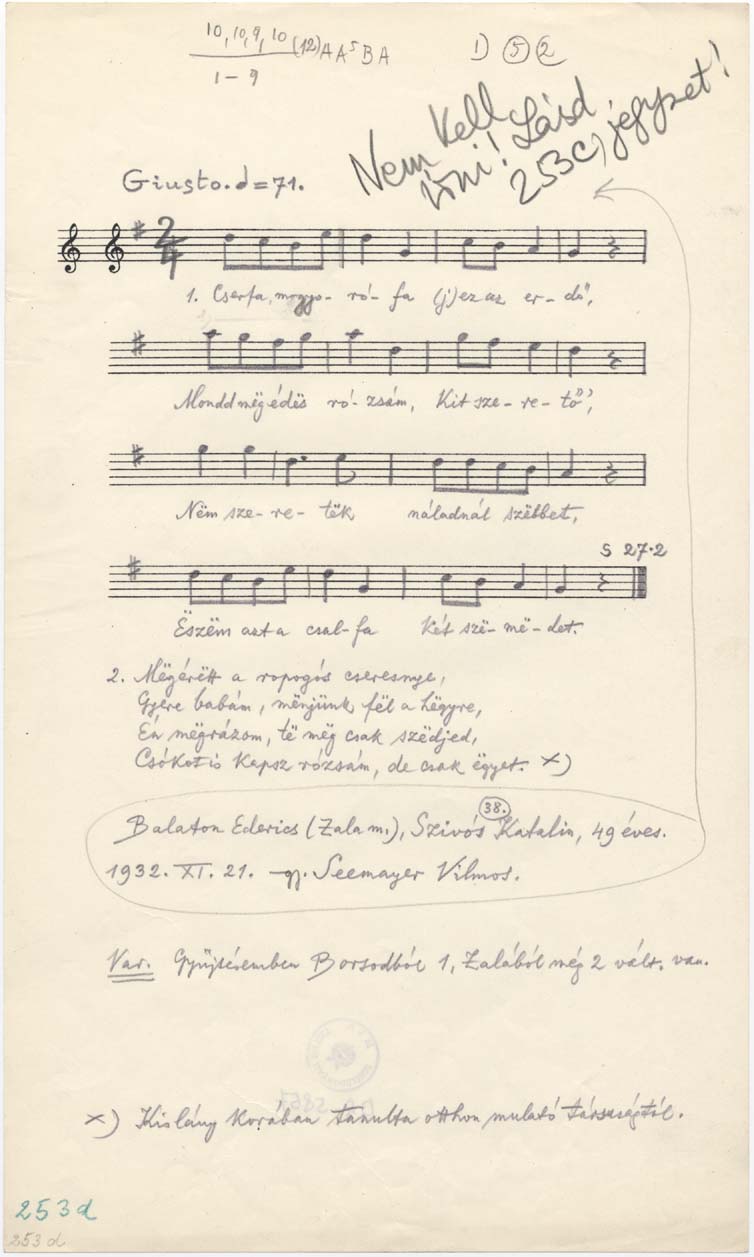 10, 10, 9, 10 (12) A A⁵ B A
1 – 9
1) 5 2
Nem kell
írni! Lásd
253c) jegyzet!
Giusto. ♩=71.
2/4
1. Cserfa, mogyo- ró- fa (j)ez az er- dő,
Mondd mëg édës ró- zsám, Kit sze- re- tő",
Nëm sze- re- tëk náladnál szëbbet,
S 27·2
Ëszëm azt a csal- fa két szë- më- det.
2. Mëgérëtt a ropogós cseresnye,
Gyere babám, mënjünk fël a hëgyre,
Én mëgrázom, të mëg csak szëdjed,
Csókot is kapsz rózsám, de csak ëgyet. x)
38.
Balaton Ederics (Zala m.), Szivós Katalin, 49 éves.
1932. XI. 21. gy. Seemayer Vilmos.
Var. Gyűjtésemben Borsodból 1, Zalából még 2 vált. van.
x) Kislány korában tanulta otthon mulató társaságtól.
253d
253d